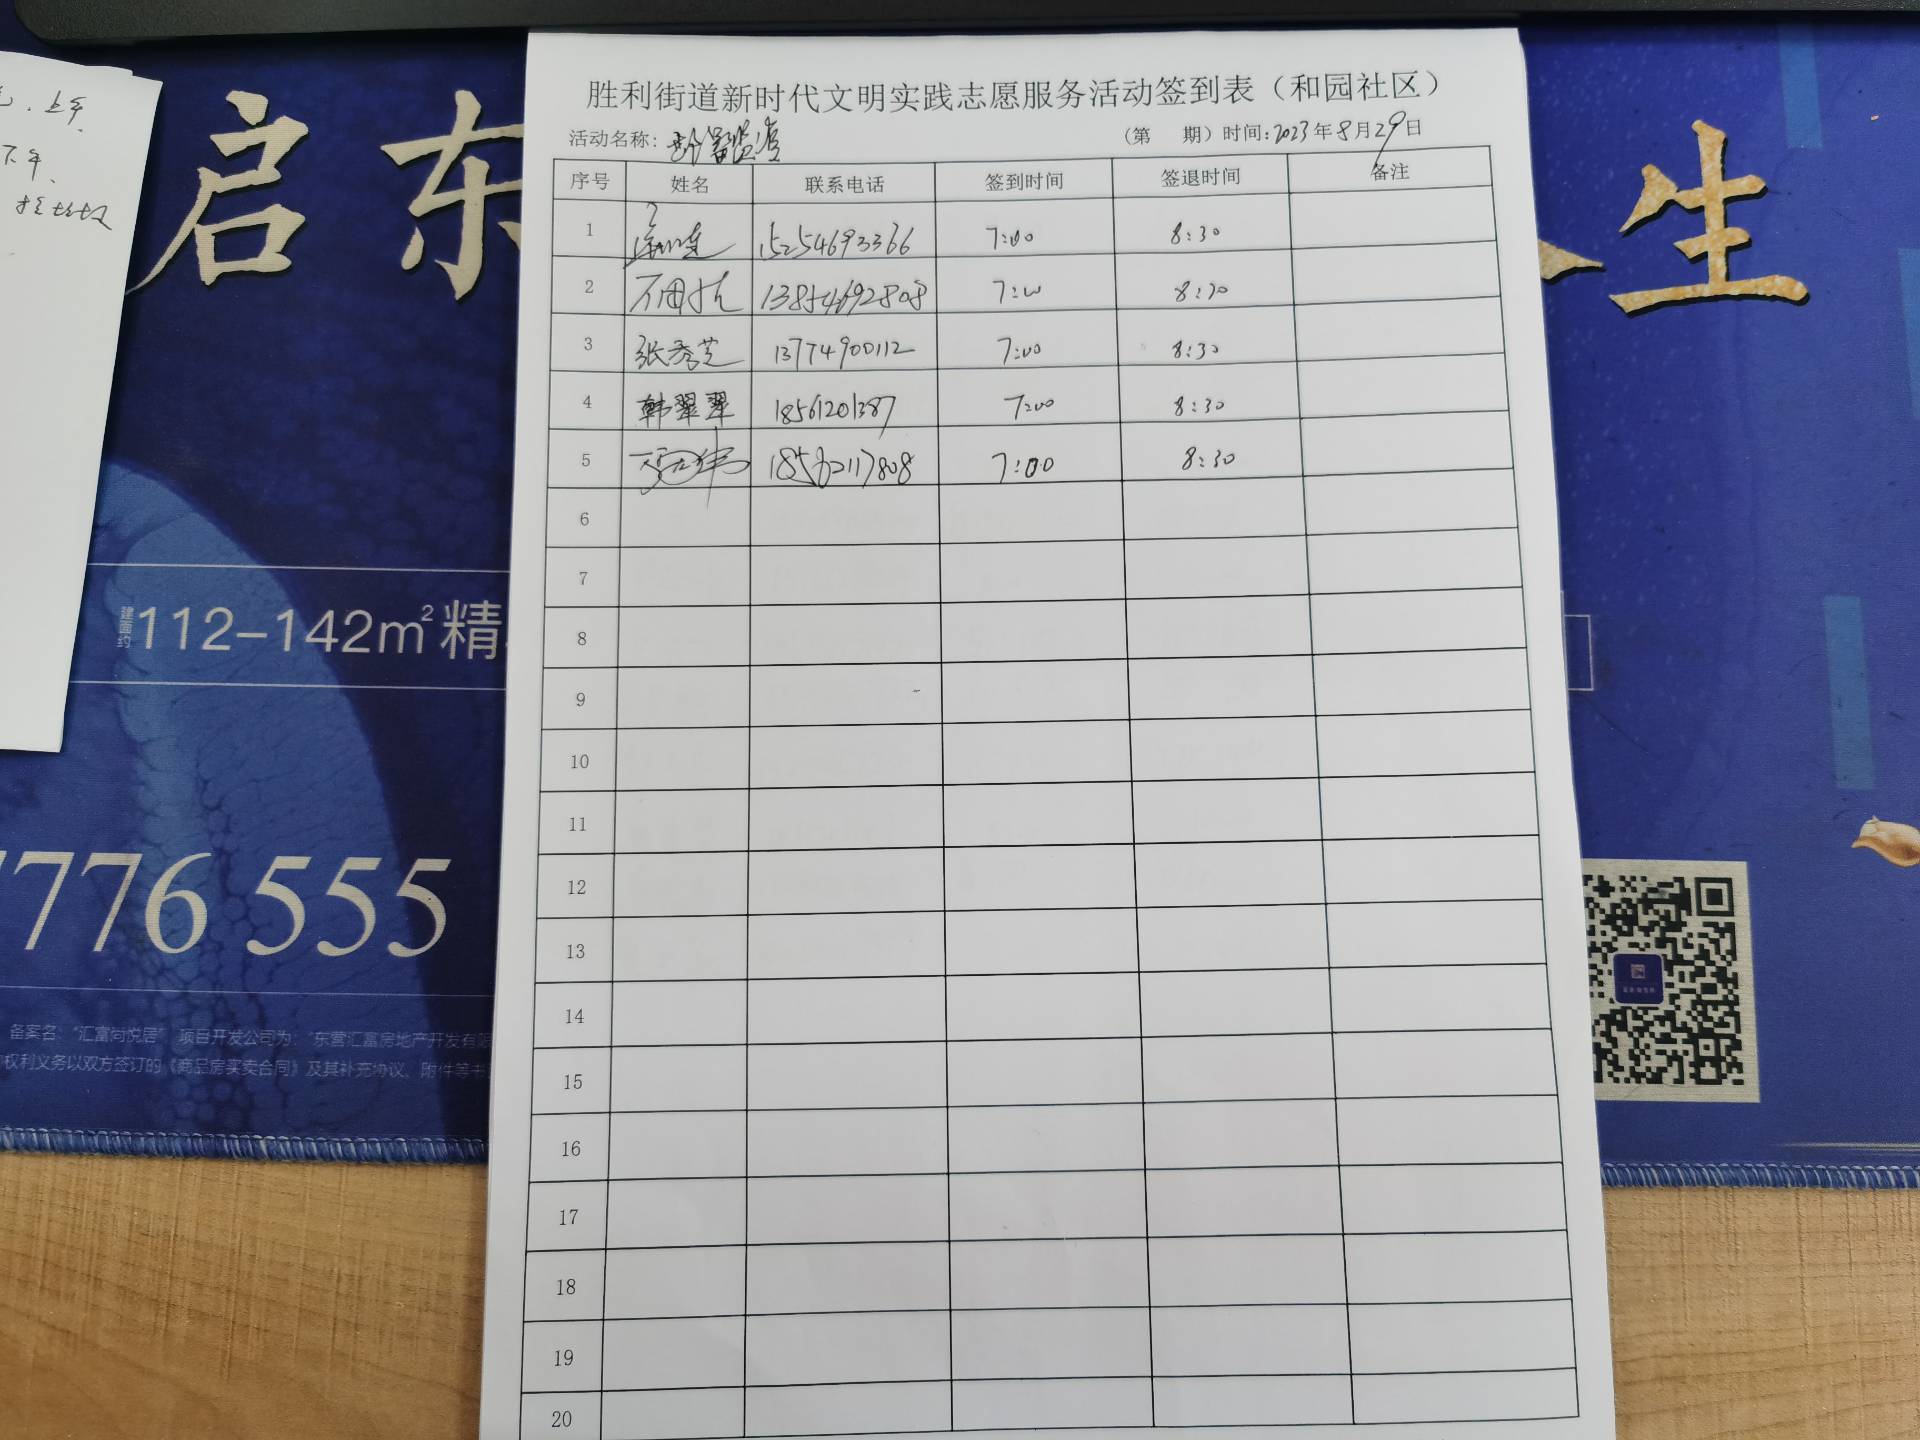 胜利街道新时代文明实践志愿服务活动签到表（和园社区）
活动名称： （第 期）时间：2023年8月29日
序号 姓名 联系电话 签到时间 签退时间 备注
1 15254693366 7:00 8:30
2 13854692808 7:00 8:30
3 张秀芝 13774900112 7:00 8:30
4 韩翠翠 18561201387 7:00 8:30
5 7:00 8:30
6
7
8
9
10
11
12
13
14
15
16
17
18
19
20
上午
下午
启东
生
建面约112-142m²精
776 555
备案名：“汇富尚悦居” 项目开发公司为：“东营汇富房地产开发有限
权利义务以双方签订的《商品房买卖合同》及其补充协议、附件等书